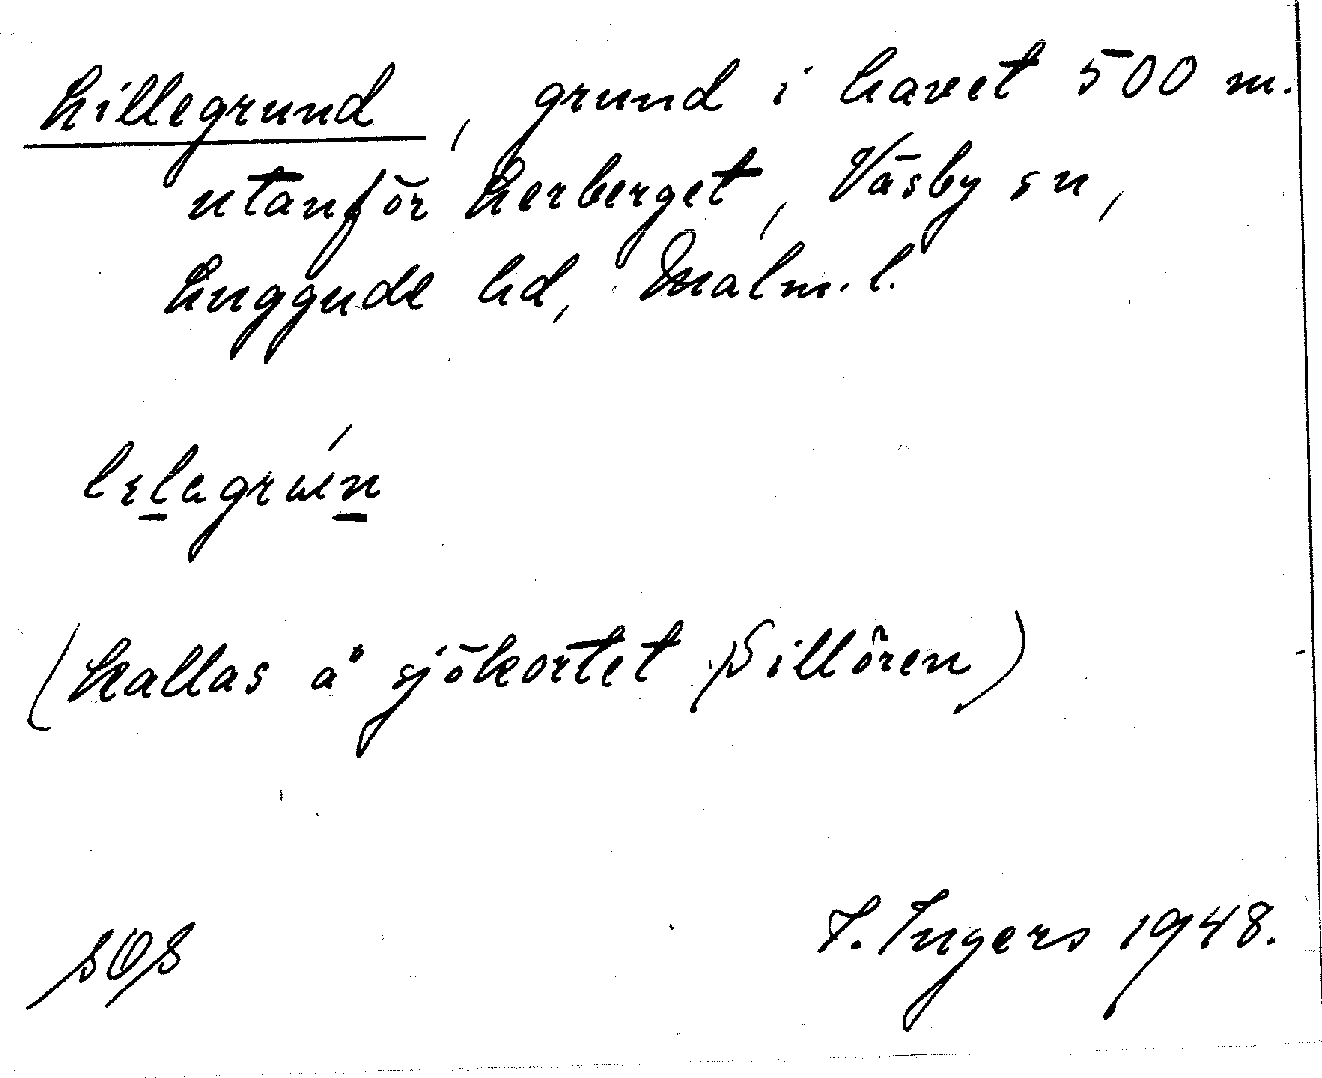 Lillegrund, grund i havet 500 m.
utanför Lerberget, Väsby sn,
Luggude hd, Malm. l.
lɛlagrún
(Kallas å sjökortet Sillören)
I. Ingers 1948.
SOS